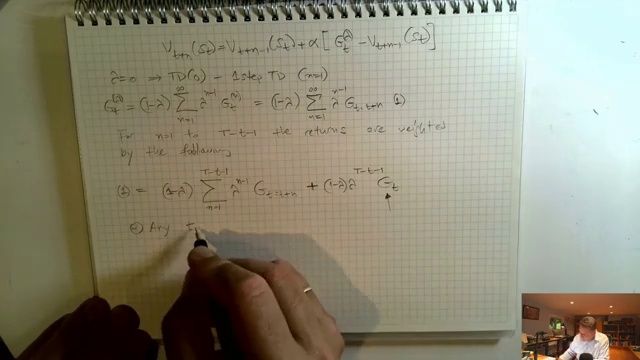 V_{t+n}(S_t) = V_{t+n-1}(S_t) + α[G_t^λ − V_{t+n-1}(S_t)]
λ=0 ⇒ TD(0) − 1 step TD (n=1)
G_t^{(λ)} = (1-λ) Σ_{n=1}^{∞} λ^{n-1} G_t^{(n)} = (1-λ) Σ_{n=1}^{∞} λ^{n-1} G_{t,t+n} (1)
For n=1 to T-t-1 the returns are weighted
by the following
(1) = (1-λ) Σ_{n=1}^{T-t-1} λ^{n-1} G_{t=t+n} + (1-λ)λ^{T-t-1} G_t
Any